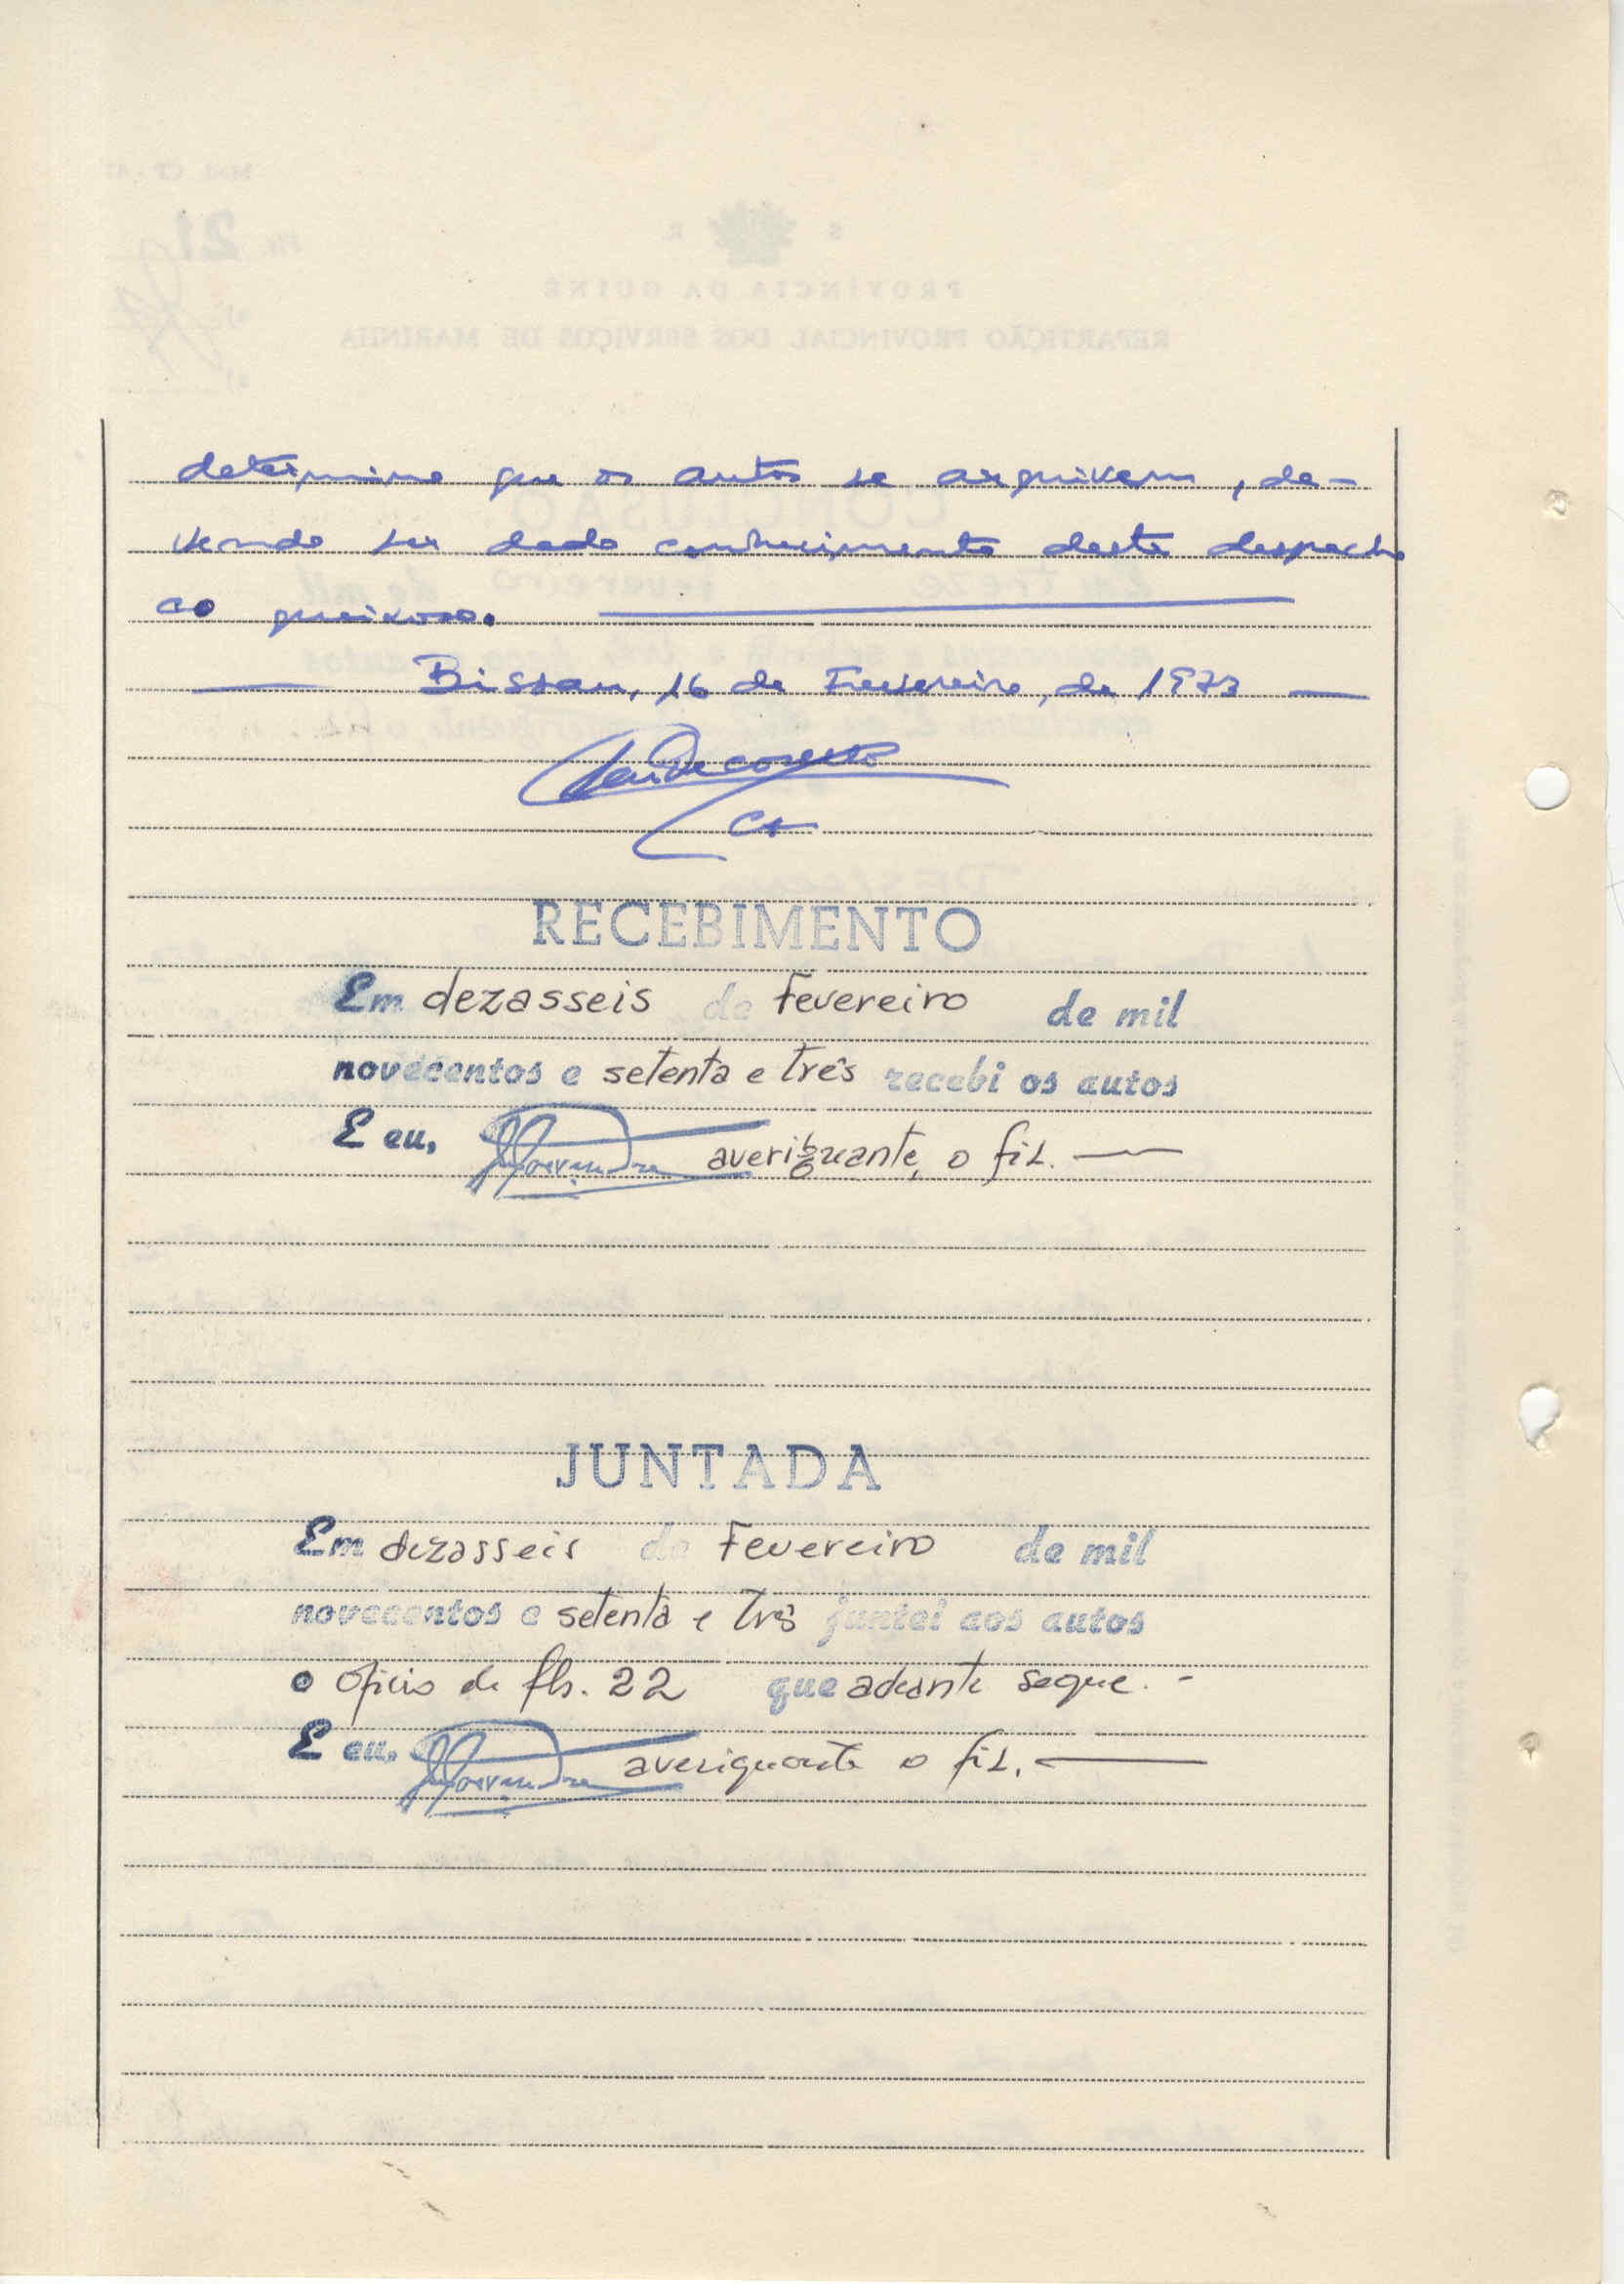 determino que os autos se arquivem, de-
vendo ser dado conhecimento deste despacho
ao queixoso.
Bissau, 16 de Fevereiro, de 1973
RECEBIMENTO
Em dezasseis de Fevereiro de mil
novecentos e setenta e três recebi os autos
E eu, averiguante, o fiz.
JUNTADA
Em dezasseis de Fevereiro de mil
novecentos e setenta e três juntei aos autos
o ofício de fls. 22 que adeante segue. -
E eu, averiguante o fiz.